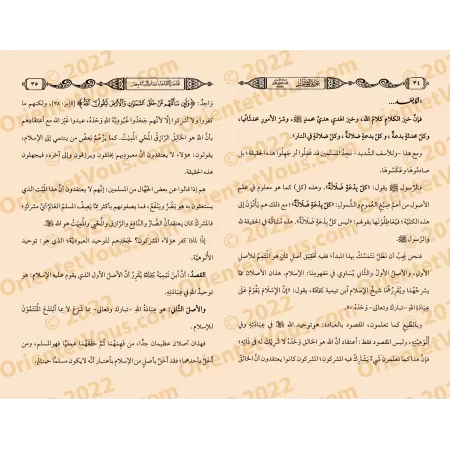 ٣٤
«أما بعد...
فإنَّ خيرَ الكلامِ كلامُ الله، وخيرَ الهدي هديُ محمدٍ ﷺ، وشرَّ الأمورِ محدثاتُها،
وكلَّ محدثةٍ بدعة، وكلَّ بدعةٍ ضلالةٌ، وكلَّ ضلالةٍ في النار».
ومع هذا -وللأسف الشديد- نجدُ المسلمين قد غَفَلُوا أو جَهِلُوا هذه الحقيقة؛ بل
صادموها وعَكَسُوها.
فالرَّسولُ ﷺ يقول: «كُلُّ بِدْعَةٍ ضَلَالَةٌ»، وهذه (كل) كما هو معلومٌ في علمِ
الأصول، من أعمِّ صِيَغِ العُمومِ والشُّمول؛ «كُلُّ بِدْعَةٍ ضَلَالَةٌ»، مع ذلك هم يَأْتُونَ إلى
هذه الكلية؛ فيُعَاطِلُونَهَا بقولهم: «ليس كلُّ بدعةٍ ضلالةٌ»، هذه مُشَاقَّةٌ في الحقيقة لله
والرَّسول ﷺ.
فنحن يجبُ أن نَظَلَّ نَتَمَسَّكُ بهذا المبدأ؛ ففيه تحقيقُ أصلٍ ثانٍ هو المُتَمِّمُ للأصلِ
الأول، والأصلُ الأولُ والثاني يُسَاوِي في مَفهومِنَا: الإسلام، هذان الأصلان ممَّا
يشرحُهُمَا ويُقَرِّرُهُمَا شيخُ الإسلام ابن تيمية كثيرًا؛ يقول: «إنَّ الإسْلَامَ يَقُومُ عَلَى
عِبَادَةِ اللهِ -تبارك وتعالى- وَحْدَهُ».
وبالطَّبْعِ كما تعلمون، المقصود بالعبادة: هو توحيد الله ﷻ في عِبَادَتِهِ وفي
أُلُوهِيَّتِهِ، وليس المقصود فقط: أعتقد أنَّ الله هو الخالقُ وَحْدَهُ لا شريكَ له في ذاته؛
فإنَّ هذا كما تعلمون شيءٌ يَشْتَرِكُ فيه المشركون؛ المشركون كانوا يعتقدون أنَّ الخالقَ
٣٥
واحدٌ: ﴿وَلَئِن سَأَلْتَهُم مَّنْ خَلَقَ السَّمَاوَاتِ وَالْأَرْضَ لَيَقُولُنَّ اللَّهُ﴾ [الزمر: ٣٨]، ولكنهم ما
كفروا ولا أشركوا إلَّا لأنهم جَحَدُوا عُبُودِيَّةَ اللهِ وَحْدَهُ، عبدوا غيرَ الله مع اعتقادِهم
بأنَّ الله هو الخالقُ الرَّازقُ المُحْيِي المُمِيتُ. كما يزعُمُ بعضُ من ينتمي إلى الإسلام،
يقولون: هؤلاء لا يعتقدون أنَّ معبوديهم يخلقون ويرزقون إلى آخره؛ فيجهلون
هذه الحقيقة.
هم إذا قالوا عن بعض الجُهَّالِ من المسلمين: إنَّهم لا يعتقدون أنَّ هذا الميِّتَ الذي
يستغيثون به هو يَضُرُّ ويَنْفَعُ، فما يصفونهم بأكثرَ ممَّا يَصِفُ المسلمُ العَالِمُ أيَّ مُشركٍ؛
فالمشركُ كان يعتقدُ أنَّ الضَّارَّ والنَّافعَ والرَّازقَ والمُحْيِيَ والمُمِيتَ هو الله ﷻ.
إذًا لماذا كفر هؤلاء المشركون؟ لجَحْدِهم لتوحيدِ العبوديَّة؛ الذي هو: توحيد
الألُوهيَّة.
القصدُ: أنَّ ابنَ تَيْمِيَّةَ يُلِحُّ تَقْرِيرُ أنَّ الأصلَ الأولَ الذي يقومُ عليه الإسلام: هو
توحيدُ اللهِ في عِبَادَتِهِ.
والأصلُ الثاني: هو عِبَادَةُ الله -تبارك وتعالى- بما شَرَعَ لا بما ابْتَدَعَ المُنْتَمُونَ
للإسلام.
فهذان أصلان عظيمان جدًّا، من فَهِمَهُمَا ثُمَّ حَقَّقَهُمَا عمليًّا فهو المسلم، ومن
أخلَّ بأحدهما؛ فقد أخلَّ بأصلٍ من الإسلام باعتبار أنَّه لا يكون مسلمًا حينئذٍ.
© 2022
OrientetVous.com